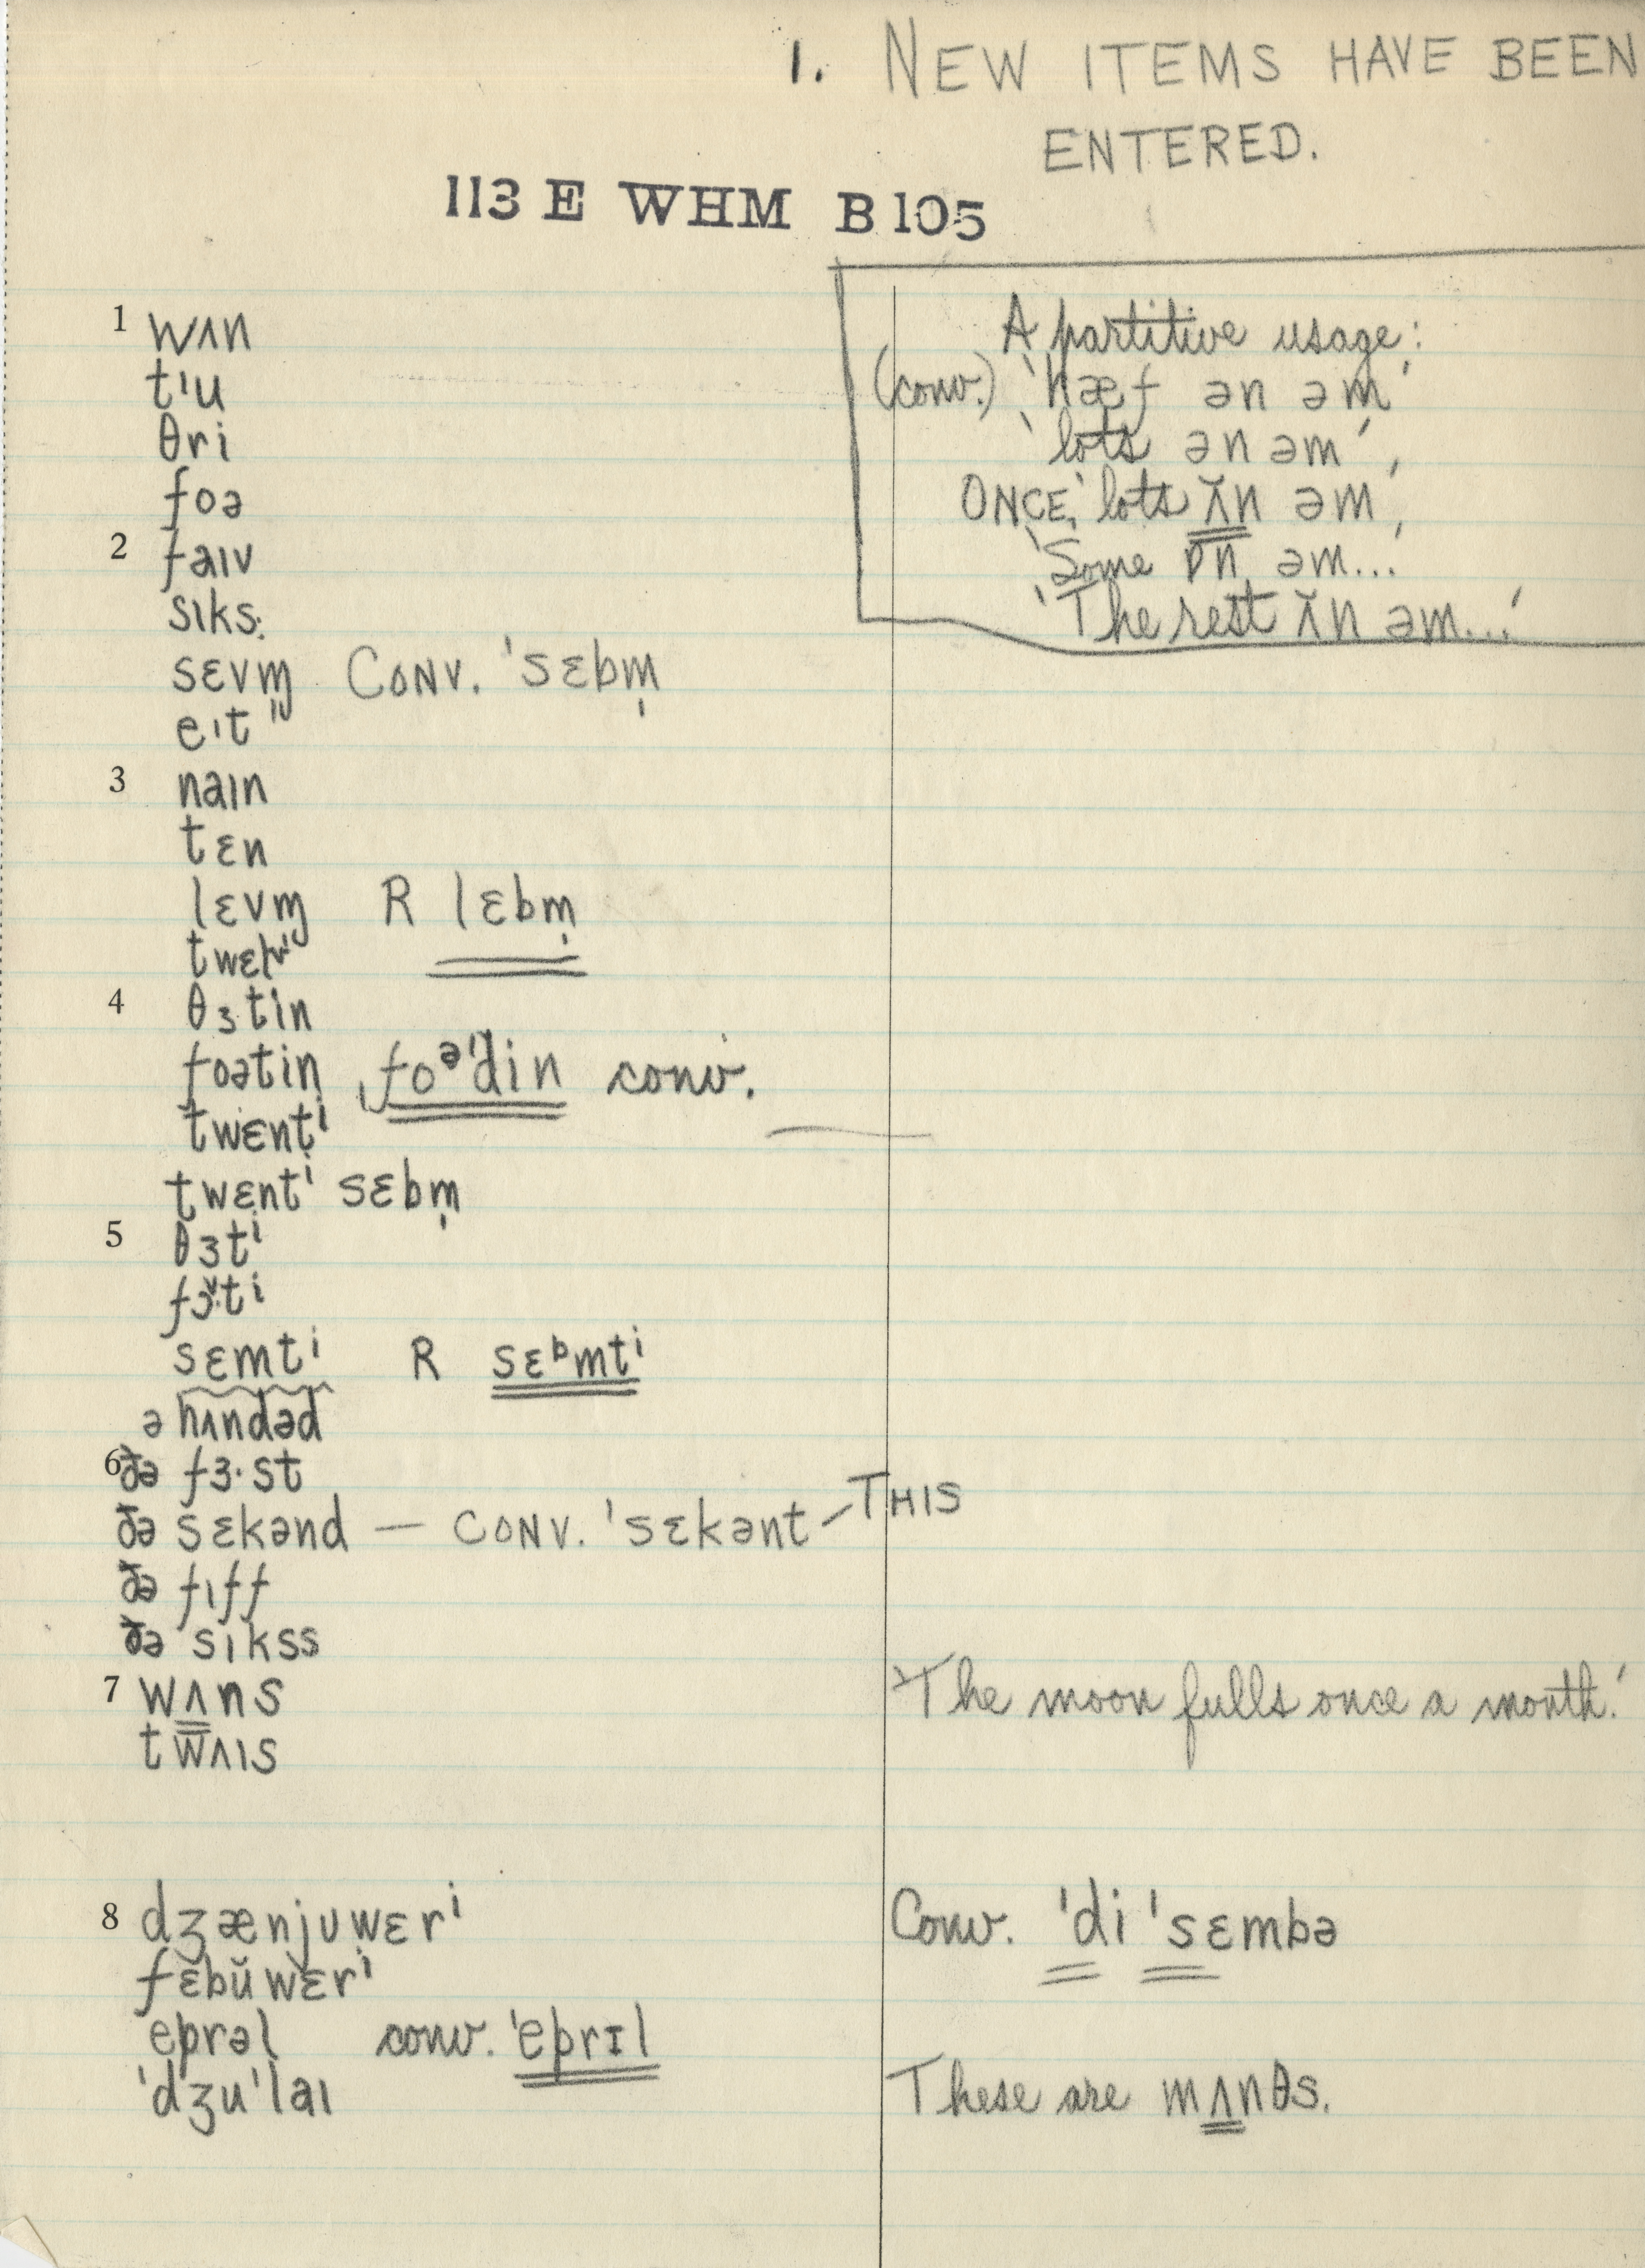 1. NEW ITEMS HAVE BEEN
ENTERED.
113 E WHM B105
A partitive usage:
(conv.) 'hæf ən əm'
'lots ən əm',
ONCE, 'lots ʌ̆n əm',
'Some ɒn əm...'
'The rest ʌ̆n əm...'
1 wʌn
tᶦu
θri
foə
2 faɪv
sɪks
sɛvm̩ CONV. 'sɛbm̩
eɪt
3 naɪn
tɛn
lɛvm̩ R lɛbm̩
4 θɜtin
foətin ˌfoᵊ'din conv.
twɛntⁱ
twɛntⁱ sɛbm̩
5 θɜtⁱ
tⁱ
sɛmtⁱ R sɛᵇmtⁱ
ə hʌndəd
6 ðə fɜ·st
ðə sɛkənd — CONV. 'sɛkənt – THIS
ðə fɪff
ðə sɪkss
7 wʌns 'The moon fulls once a month.'
twʌɪs
8 dʒænjʊwɛrⁱ Conv. 'di 'sɛmbə
fɛbŭwɛrⁱ
eprəl conv. 'eprɪl
'dʒu'laɪ These are mʌnθs.